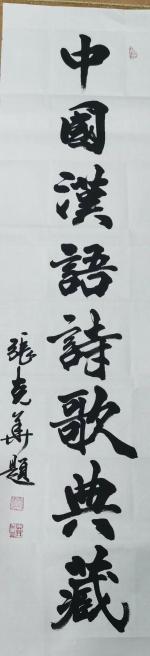 中國漢語詩歌典藏
張克華題